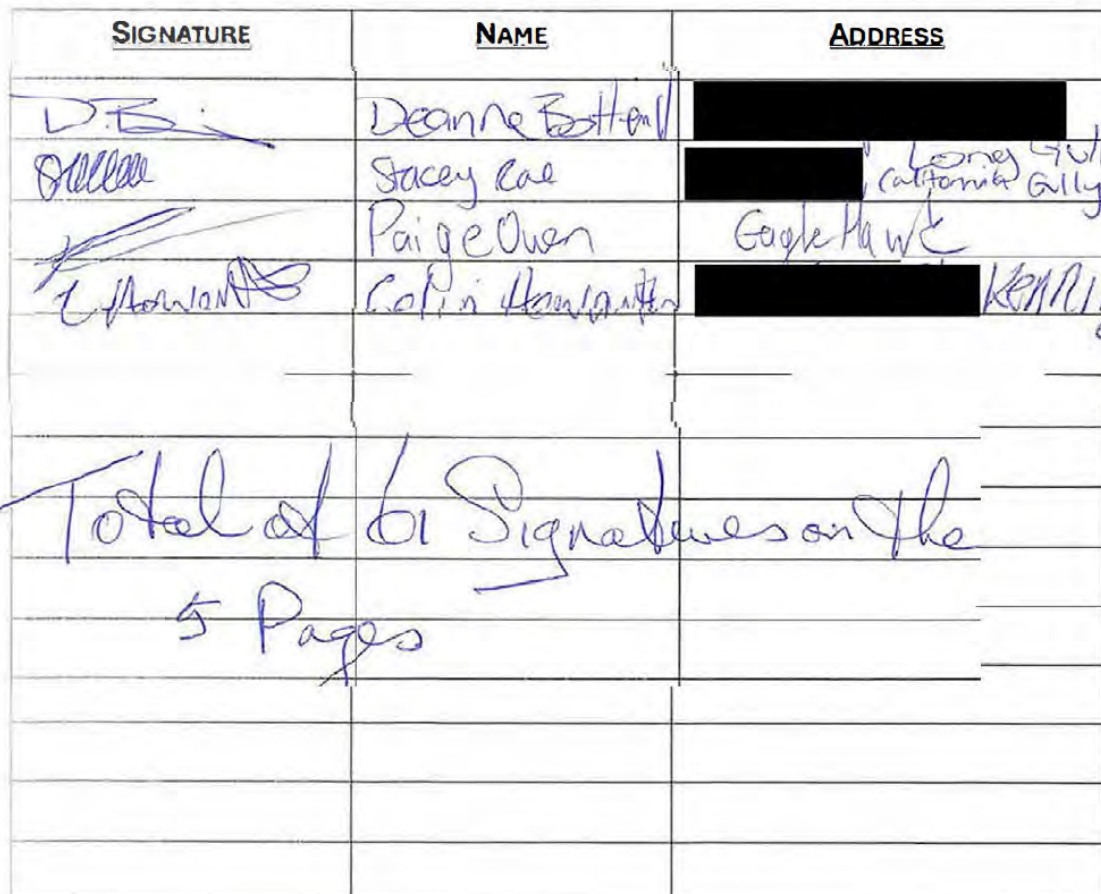 SIGNATURE NAME ADDRESS
D.B. Deanne
Stacey Rae Long Gully
California Gully
Paige Owen EagleHawk
Colin
Total of 61 Signatures on the
5 Pages